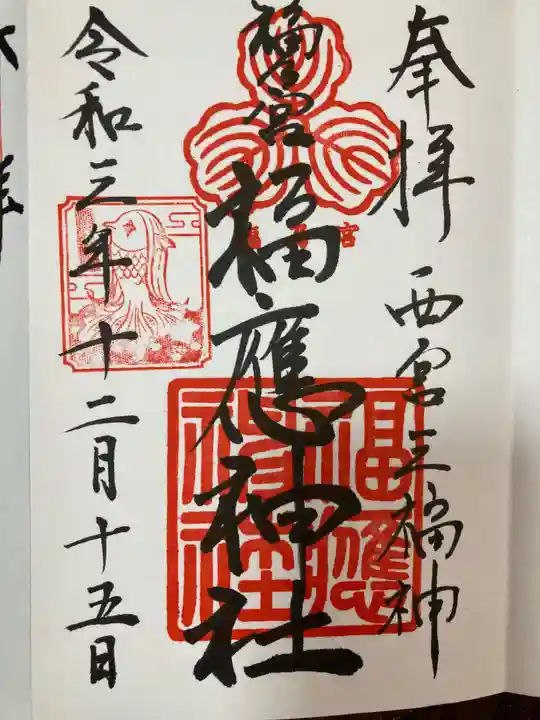 奉拝 西宮三福神
福宮 福應神社
福應神社
令和三年十二月十五日